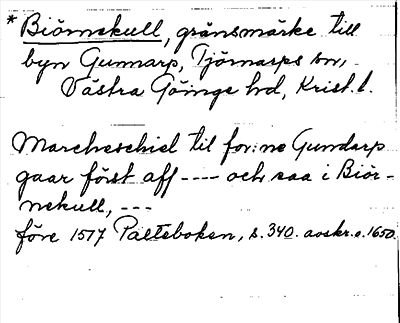 * Biörnekull, gränsmärke till
byn Gumarp, Tjörnarps sn,
Västra Göinge hd, Krist. l.
Marcheschiel til for:ne Gundarp
gaar först aff ---- och saa i Biör-
nekull, ---
före 1517 Palteboken, s. 340. avskr. o. 1650.